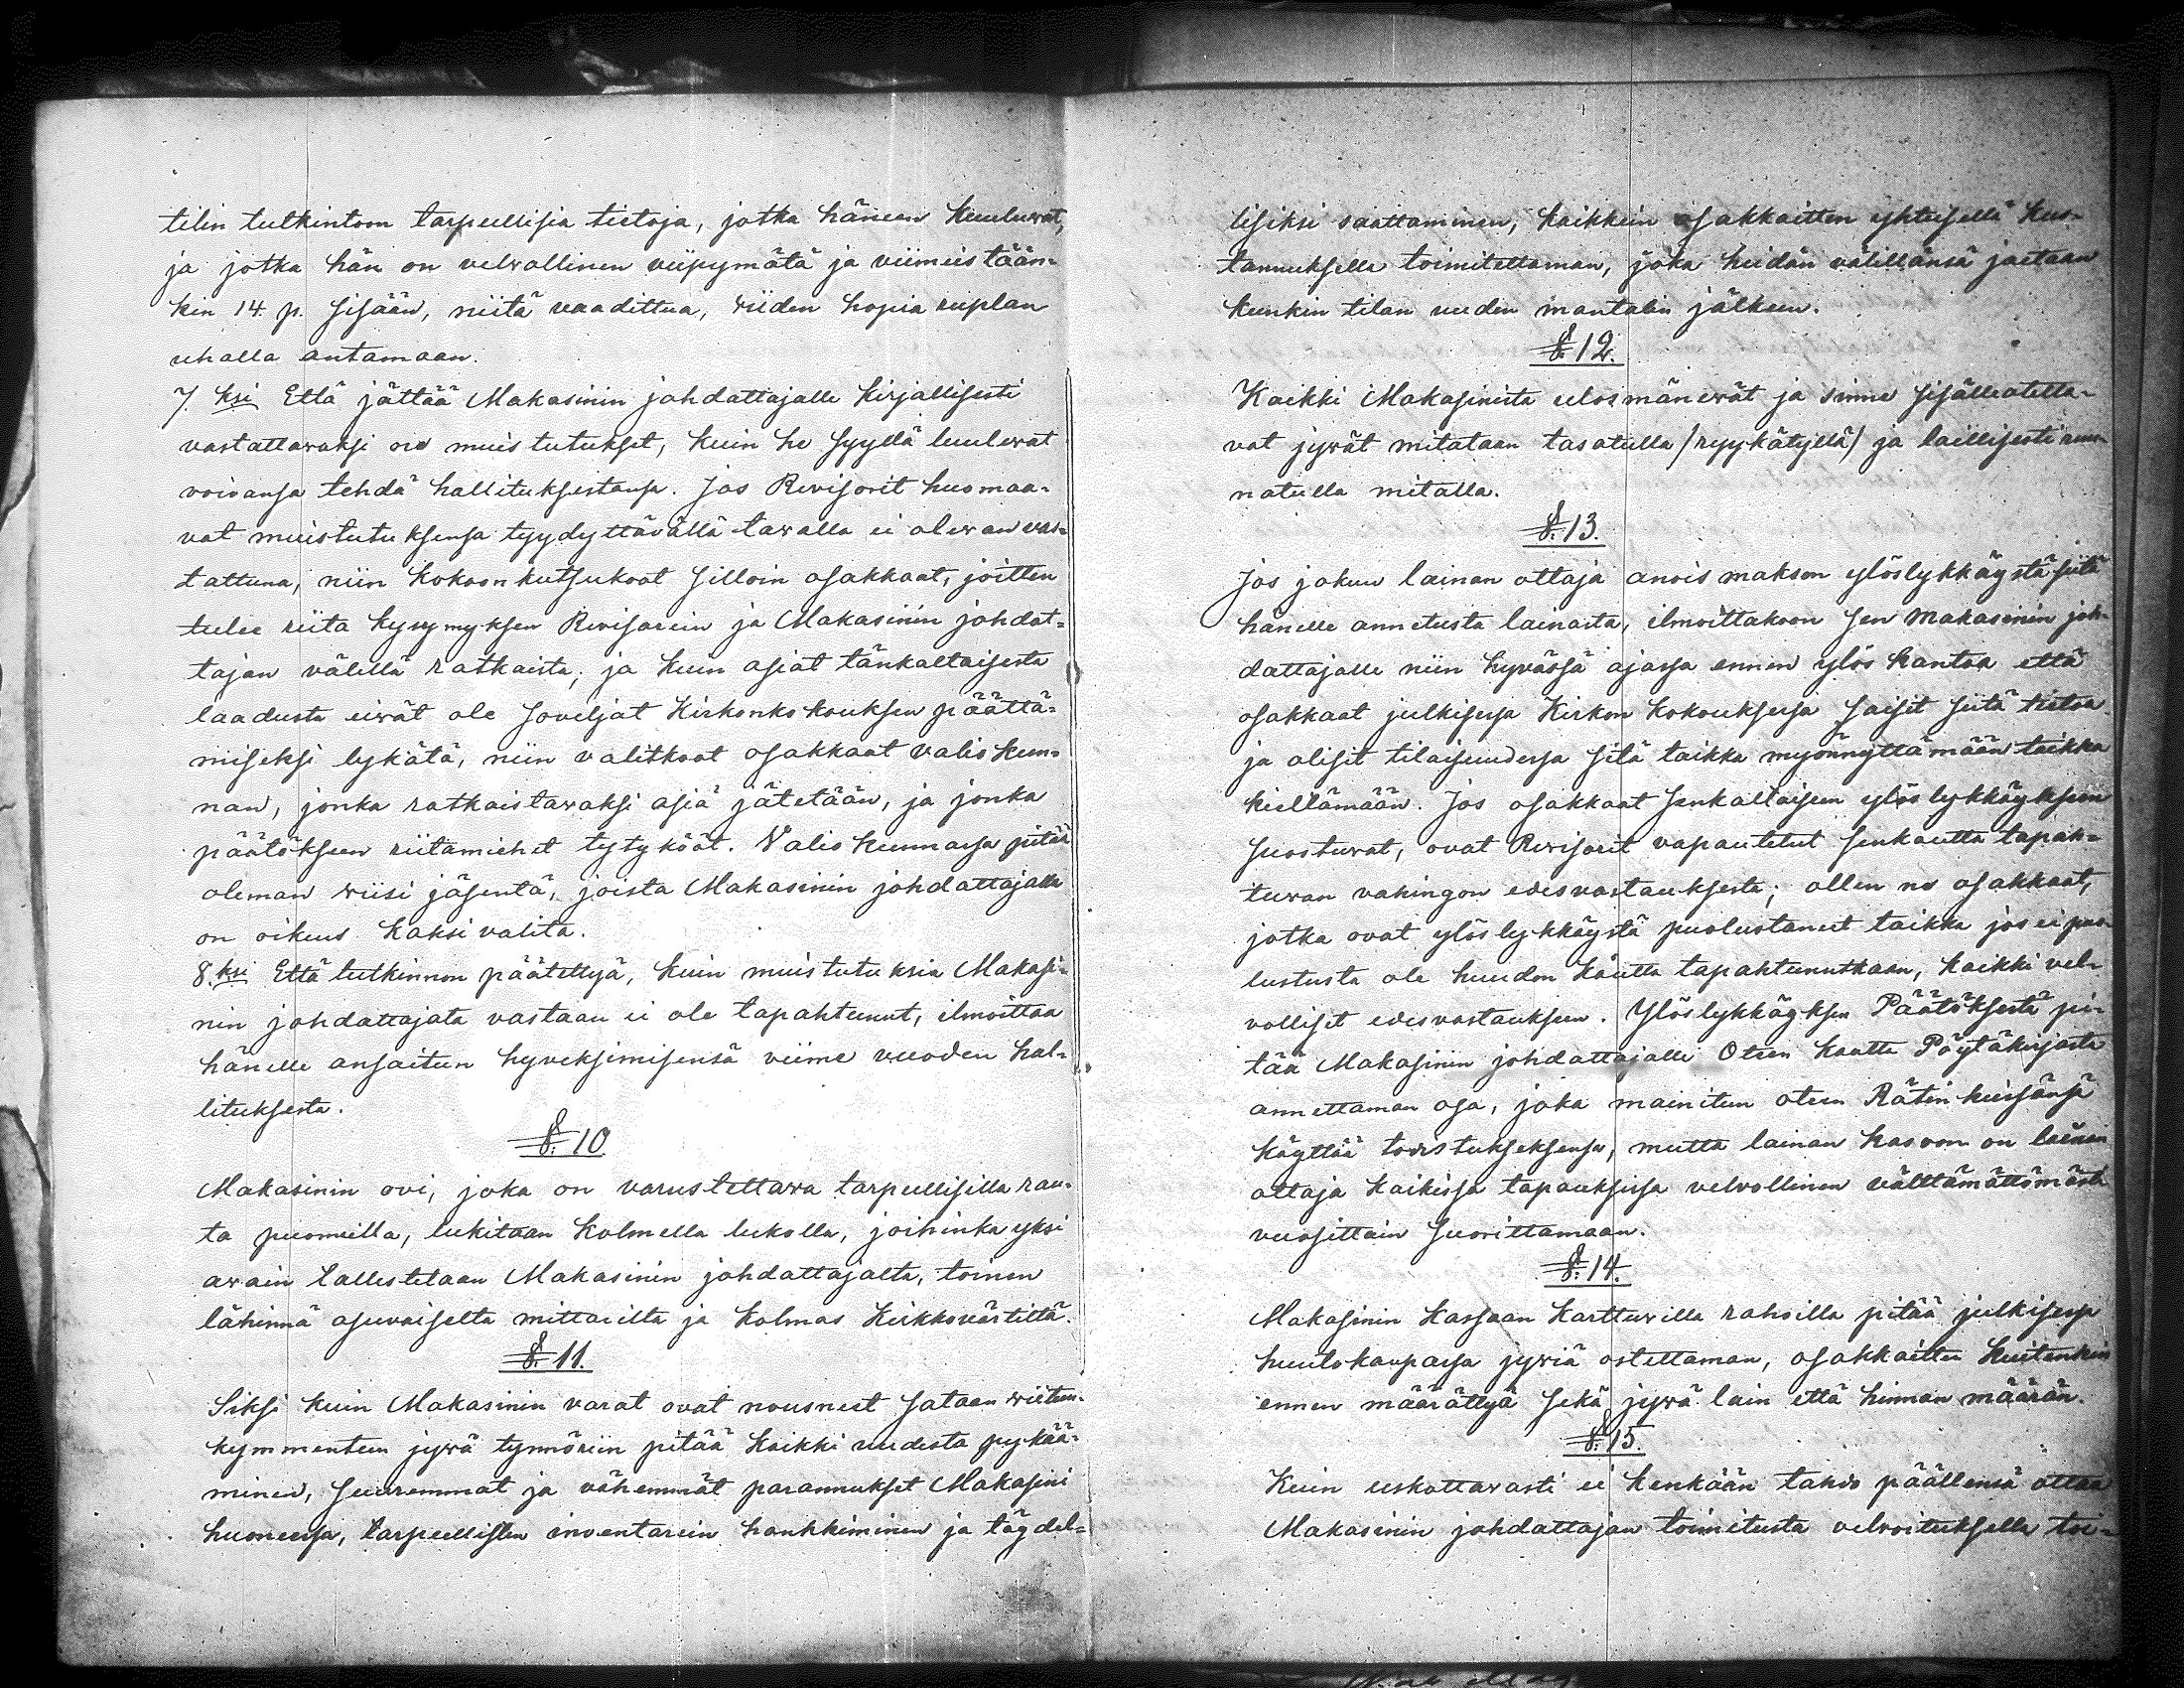 tilin tutkintoon tarpeellisia tietoja, jotka häneen kuuluwat,
ja jotka hän on velwollinen viipymätä ja viimeistään-
kin 14. p. sisään, niitä vaadittua, wiiden hopia ruplan
uhalla antamaan.
7. ksi Että jättää Makasinin johdattajalle kirjallisesti
vastattavaksi ne muistutukset, kuin he syyllä luulewat
voivansa tehdä hallituksestansa. Jos Revisorit huomaa-
vat muistutuksensa tyydyttävällä tavalla ei olewan vas-
tattuna, niin kokoon kutsukoot silloin osakkaat, joitten
tulee riita kysymyksen Revisorein ja Makasinin johdat-
tajan välillä ratkaista, ja kuin asiat tänkaltaisesta
laadusta eiwät ole soveljat Kirkonkokouksen päättä-
miseksi lykätä, niin valitkoot osakkaat valiokun-
nan, jonka ratkaistavaksi asia jätetään, ja jonka
päätökseen riitamiehet tytykööt. Valiokunnassa pitää
oleman wiisi jäsentä, joista Makasinin johdattajalla
on oikeus kaksi valita.
8. ksi Että tutkinnon päätettyä, kuin muistutuksia Makasi-
nin johdattajata vastaan ei ole tapahtunut, ilmoittaa
hänelle ansaitun hyveksimisensä viime vuoden hal-
lituksesta.
§. 10.
Makasinin ovi, joka on varustettawa tarpeellisilla rau-
ta puomilla, lukitaan kolmella lukolla, joihinka yksi
avain tallestetaan Makasinin johdattajalta, toinen
lähinnä asuvaiselta mittarilta ja kolmas Kirkkovärtiltä.
§. 11.
Siksi kuin Makasinin varat ovat nousneet sataan wiiten-
kymmenteen jywä tynnöriin pitää kaikki uudesta pykää-
minen, suuremmat ja vähemmät parannukset Makasini
huoneessa, tarpeellisten inventarein hankkiminen ja täydel-
lisiksi saattaminen, kaikkein osakkaitten yhteisellä kus-
tannuksella toimitettaman, joka heidän välillänsä jaetaan
kunkin tilan uuden mantalin jälkeen.
§. 12.
Kaikki Makasinista ulosmänewät ja sinne sisälleotetta-
vat jywät mitataan tasatulla /ryykätyllä/ ja laillisesti ruu-
natulla mitalla.
§. 13.
Jos jokuu lainan ottaja anois makson ylöslykkäystä siitä
hänelle annetusta lainasta, ilmoittakoon sen Makasinin joh-
dattajalle niin hyvässä ajassa ennen ylös kantoa että
osakkaat julkisessa Kirkon kokouksessa saisit siitä tietoa
ja olisit tilaisuudessa sitä taikka myönnyttämään taikka
kieltämään. Jos osakkaat senkaltaiseen ylöslykkäykseen
suostuwat, ovat Revisorit vapautetut senkautta tapah-
tuvan vahingon edesvastauksesta; ollen ne osakkaat,
jotka ovat ylöslykkäystä puolustaneet taikka jos ei puo-
lustusta ole huudon kautta tapahtunutkaan, kaikki vel-
volliset edesvastaukseen. Ylöslykkäyksen Päätöksestä pi-
tää Makasinin johdattajalle Otteen kautta Pöytäkirjasta
annettaman osa, joka mainitun otteen Rätinkeissänsä
käyttää todistukseksensa, mutta lainan kasvon on lainan
ottaja kaikissa tapauksissa velvollinen välttämättömästi
vuosittain suorittamaan.
§. 14.
Makasinin kassaan karttuvilla rahoilla pitää julkisessa
huutokaupassa jywiä ostettaman, osakkaitten kuitenkin
ennen määrättyä sekä jywä lain että hinnan määrän.
§. 15.
Kuin uskottavasti ei kenkään tahdo päällensä ottaa
Makasinin johdattajan toimitusta velvoituksella toi-